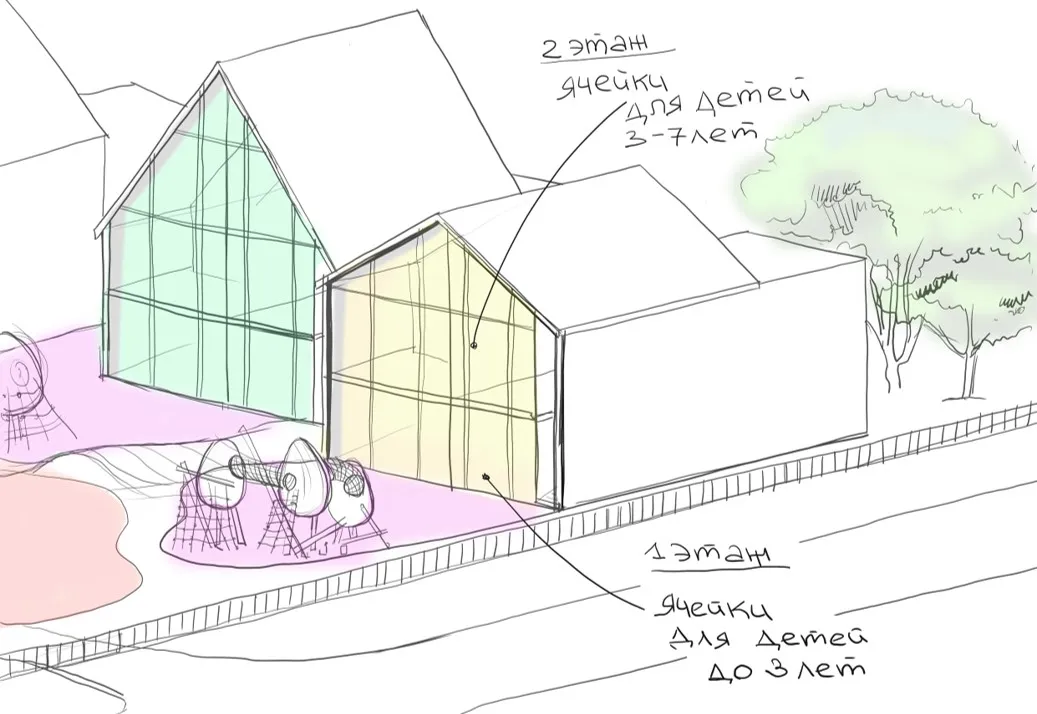 2 этаж
ячейки
для детей
3-7 лет
1 этаж
ячейки
для детей
до 3 лет